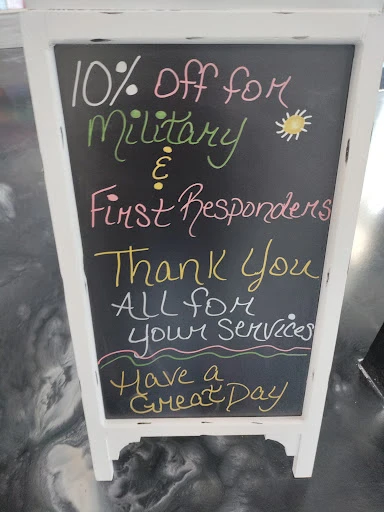 10% Off for
Military
&
First Responders
Thank You
All for
your services
Have a
Great Day